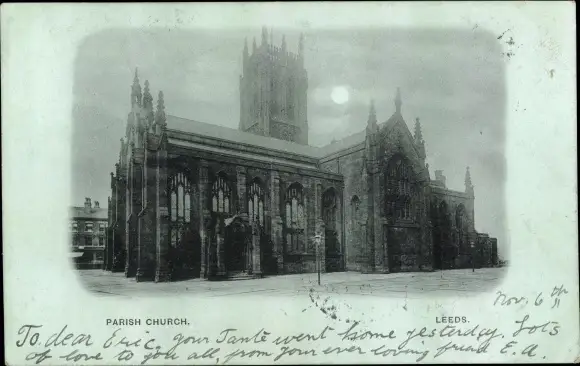 PARISH CHURCH.
LEEDS.
Nov. 6th
To dear Eric, your Tante went home yesterday. Lots
of love to you all, from your ever loving friend E.A.